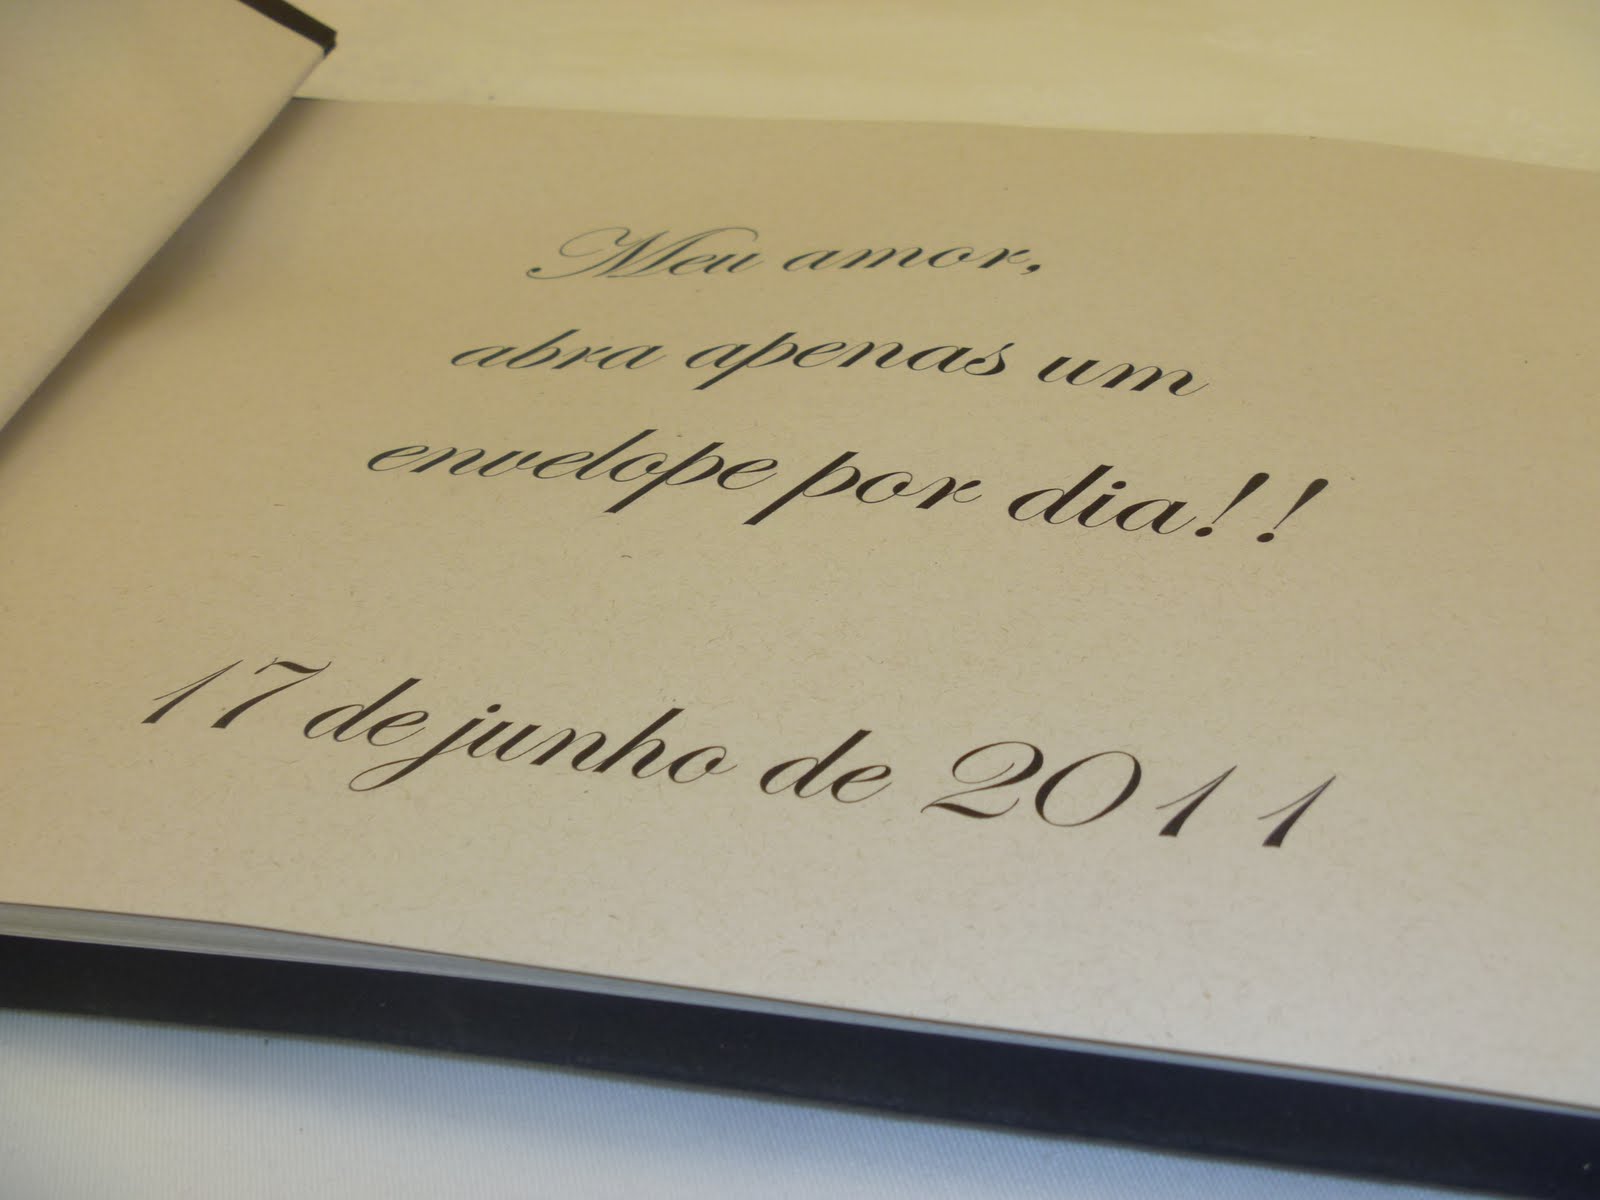 Meu amor,
abra apenas um
envelope por dia!!
17 de junho de 2011